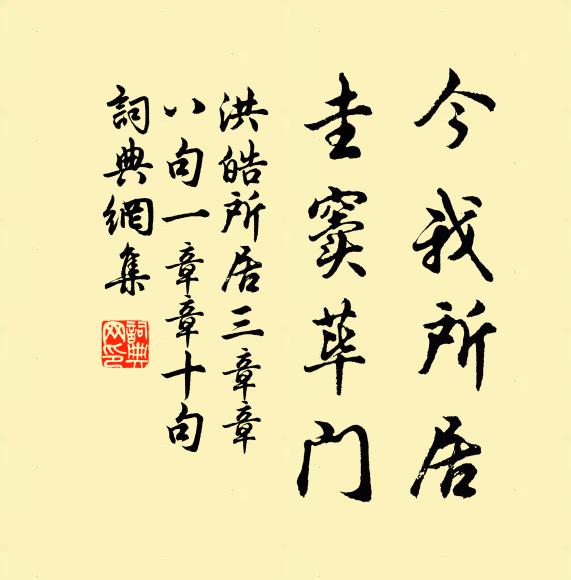 今我所居
圭竇荜門
洪皓所居三章章
八句一章章十句
詞典網集
詞典
网印